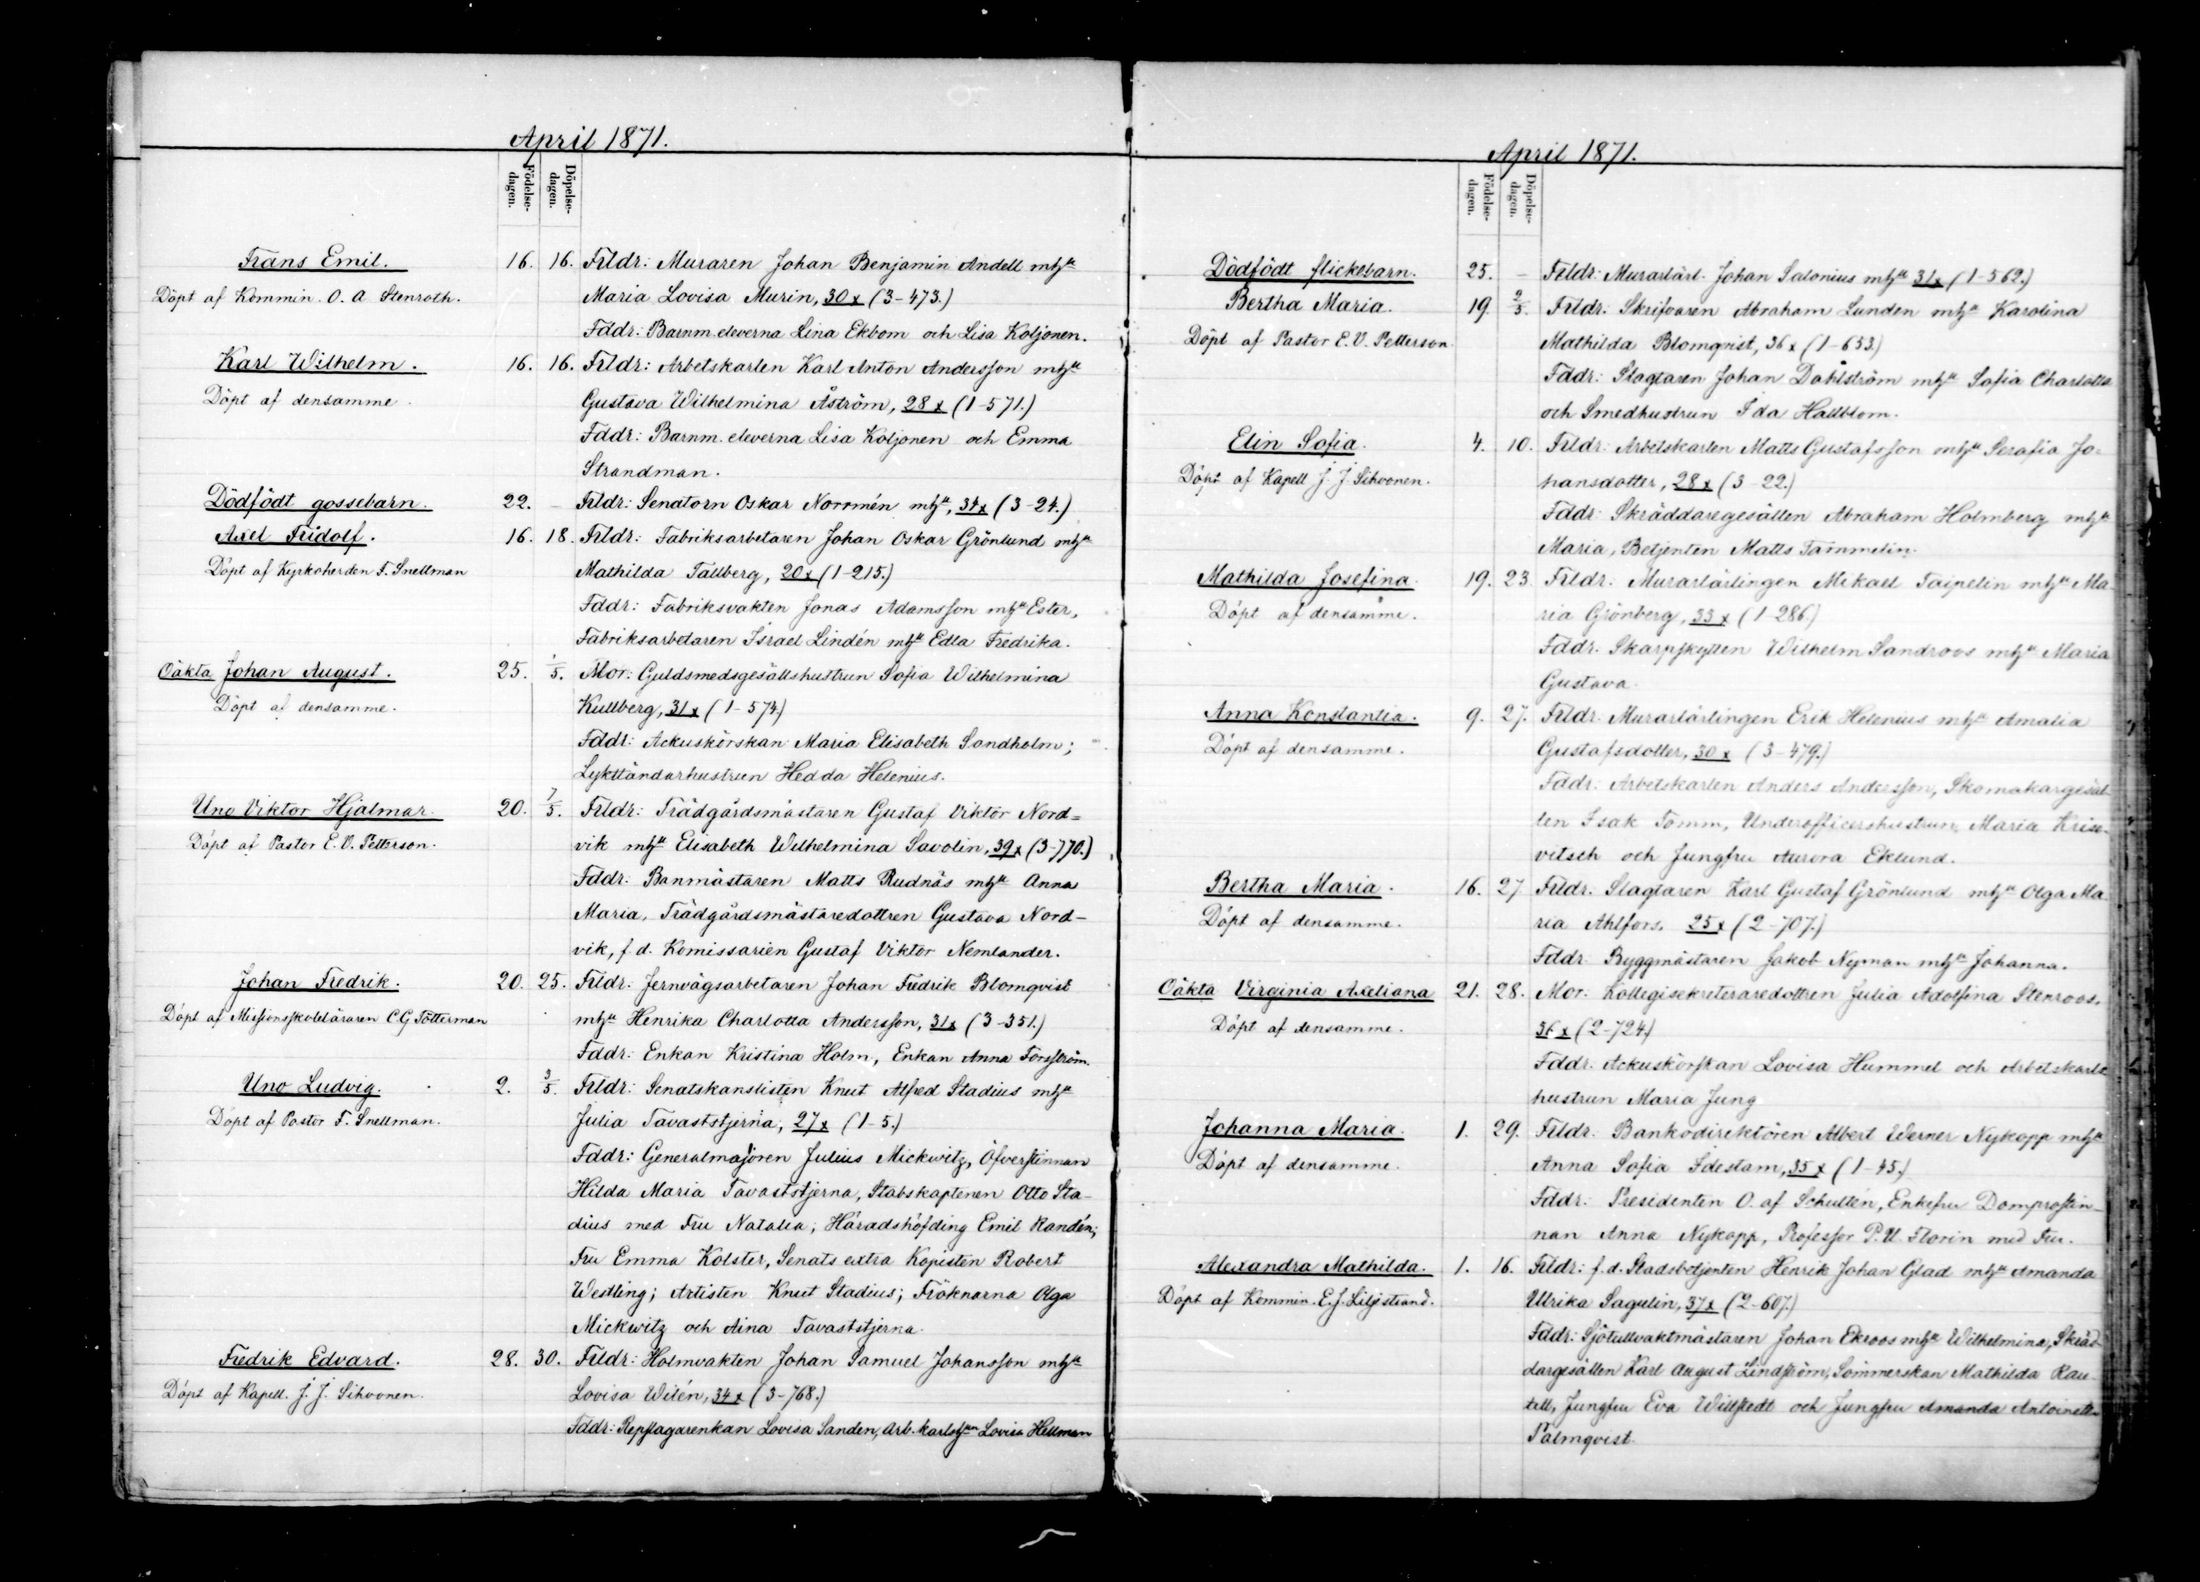 April 1871.
Födelse-dagen.
Döpelse-dagen.
Frans Emil. 16. 16. Frldr: Muraren Johan Benjamin Andell mhu
Döpt af Kommin. O. A Stenroth. Maria Lovisa Murin, 30 x (3-473.)
Fddr: Barnm. eleverna Lina Ekbom och Lisa Koljonen.
Karl Wilhelm. 16. 16. Frldr: Arbetskarlen Karl Anton Andersson mhu
Döpt af densamme. Gustava Wilhelmina Åström, 28 x (1-571.)
Fddr: Barnm. eleverna Lisa Koljonen och Emma
Strandman.
Dödfödt gossebarn. 22. - Frldr: Senatorn Oskar Norrmén mhu, 34x (3-24.)
Axel Fridolf. 16. 18. Frldr: Fabriksarbetaren Johan Oskar Grönlund mhu
Döpt af Kyrkoherden F. Snellman Mathilda Tallberg, 20 x (1-215.)
Fddr: Fabriksvakten Jonas Adamsson mhu Ester,
Fabriksarbetaren Israel Lindén mhu Edla Fredrika.
Oäkta Johan August. 25. 1/5. Mor: Guldsmedsgesällshustrun Sofia Wilhelmina
Döpt af densamme. Kullberg, 31 x (1-574.)
Fddr: Ackuskörskan Maria Elisabeth Sandholm;
Lykttändarhustrun Hedda Helenius.
Uno Viktor Hjalmar. 20. 7/5. Frldr: Trädgårdsmästaren Gustaf Viktor Nord=
Döpt af Pastor E. V. Petterson. vik mhu Elisabeth Wilhelmina Savolin, 39 x (3-770.)
Fddr: Banmästaren Matts Rudnäs mhu Anna
Maria, Trädgårdsmästaredottren Gustava Nord-
vik, f d. Komissarien Gustaf Viktor Nemlander.
Johan Fredrik. 20. 25. Frldr: Jernvägsarbetaren Johan Fredrik Blomqvist
Döpt af Missionsskoleläraren C G Tötterman mhu Henrika Charlotta Andersson, 31 x (3-351.)
Fddr: Enkan Kristina Holm, Enkan Anna Forsström.
Uno Ludvig. 2. 3/5. Frldr: Senatskanslisten Knut Alfred Stadius mhu
Döpt af Pastor F. Snellman. Julia Tavaststjerna, 27 x (1-5.)
Fddr: Generalmajoren Julius Mickwitz, Öfverstinnan
Hilda Maria Tavaststjerna, Stabskaptenen Otto Sta-
dius med Fru Natalia; Häradshöfding Emil Randén;
Fru Emma Kolster, Senats extra Kopisten Robert
Westling; Artisten Knut Stadius; Fröknarna Olga
Mickwitz och Aina Tavaststjerna.
Fredrik Edvard. 28. 30. Frldr: Holmvakten Johan Samuel Johansson mhu
Döpt af Kapell. J. J. Sihvonen. Lovisa Witén, 34 x (3-768.)
Fddr: Repslagarenkan Lovisa Sanden, Arb. karlshun Lovisa Hellman
April 1871.
Födelse-dagen.
Döpelse-dagen.
Dödfödt flickebarn. 25. - Frldr: Murarlärl. Johan Salonius mhu 31x (1-562.)
Bertha Maria. 19. 2/5. Frldr: Skrifvaren Abraham Lunden mhu Karolina
Döpt af Pastor E. V. Petterson Mathilda Blomqvist, 36 x (1-653.)
Fddr: Slagtaren Johan Dahlström mhu Sofia Charlotta
och Smedhustrun Ida Hallblom.
Elin Sofia. 4. 10. Frldr: Arbetskarlen Matts Gustafsson mhu Serafia Jo-
Döpt af Kapell J. J. Sihvonen. hansdotter, 28 x (3-22.)
Fddr: Skräddaregesällen Abraham Holmberg mhu
Maria, Betjenten Matts Tammelin.
Mathilda Josefina. 19. 23. Frldr: Murarlärlingen Mikael Taipelin mhu Ma-
Döpt af densamme. ria Grönberg, 33 x (1-286.)
Fddr: Skarpskytten Wilhelm Sandroos mhu Maria
Gustava.
Anna Konstantia. 9. 27. Frldr: Murarlärlingen Erik Helenius mhu Amalia
Döpt af densamme. Gustafsdotter, 30 x (3-479.)
Fddr: Arbetskarlen Anders Andersson, Skomakargesäl-
len Isak Tomm, Underofficershustrun Maria Kriso-
vitsch och Jungfru Aurora Eklund.
Bertha Maria. 16. 27 Frldr: Slagtaren Karl Gustaf Grönlund mhu Olga Ma
Döpt af densamme. ria Ahlfors. 25 x (2-707.)
Fddr: Byggmästaren Jakob Nyman mhu Johanna.
Oäkta Virginia Axeliana 21. 28. Mor: Kollegisekreteraredottren Julia Adolfina Stenroos,
Döpt af densamme. 36 x (2-724.)
Fddr: Ackuskörskan Lovisa Hummel och Arbetskarls
hustrun Maria Jung
Johanna Maria. 1. 29. Frldr: Bankodirektören Albert Werner Nykopp mhu
Döpt af densamme. Anna Sofia Idestam, 35 x (1-45.)
Fddr: Presidenten O. af Schultén, Enkefru Domprostin-
nan Anna Nykopp, Professor P. U. Florin med Fru.
Alexandra Mathilda. 1. 16. Frldr: f. d. Stadsbetjenten Henrik Johan Glad mhu Amanda
Döpt af Kommin. E. J. Liljestrand. Ulrika Sagulin, 37 x (2-607.)
Fddr: Sjötullvaktmästaren Johan Ekroos mhu Wilhelmina, Skräd-
dargesällen Karl August Lindström, Sömmerskan Mathilda Rau-
tell, Jungfru Eva Willstedt och Jungfru Amanda Antoinette
Palmqvist.